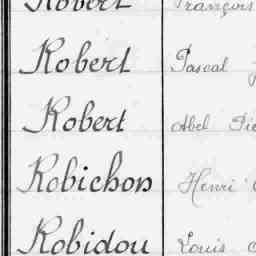 Robert François
Robert Pascal
Robert Abel
Robichon Henri
Robidou Louis